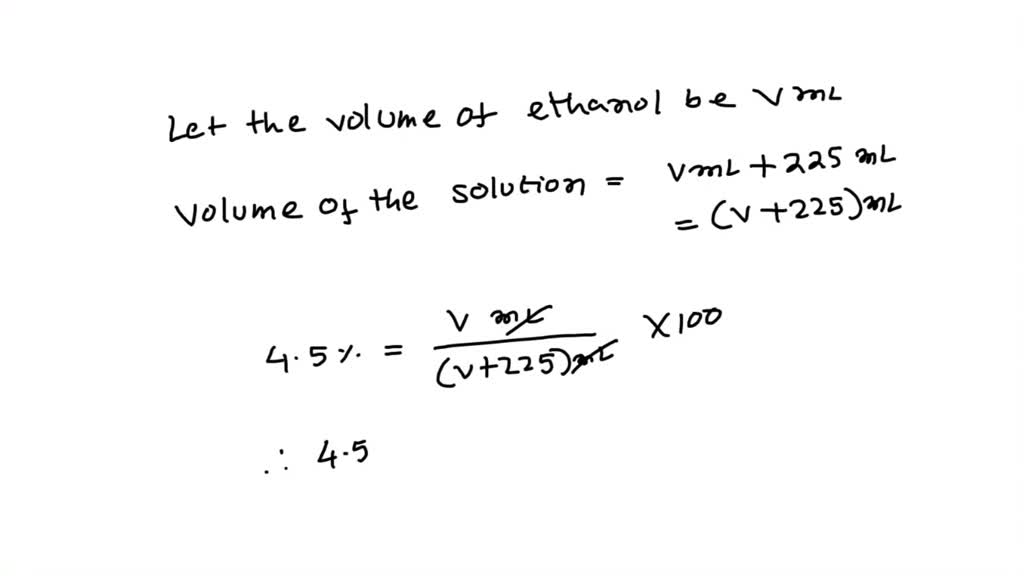 Let the volume of ethanol be V mL
Volume of the solution = V mL + 225 mL
= (V + 225) mL
4.5 % = V mL / (V + 225) mL × 100
∴ 4.5